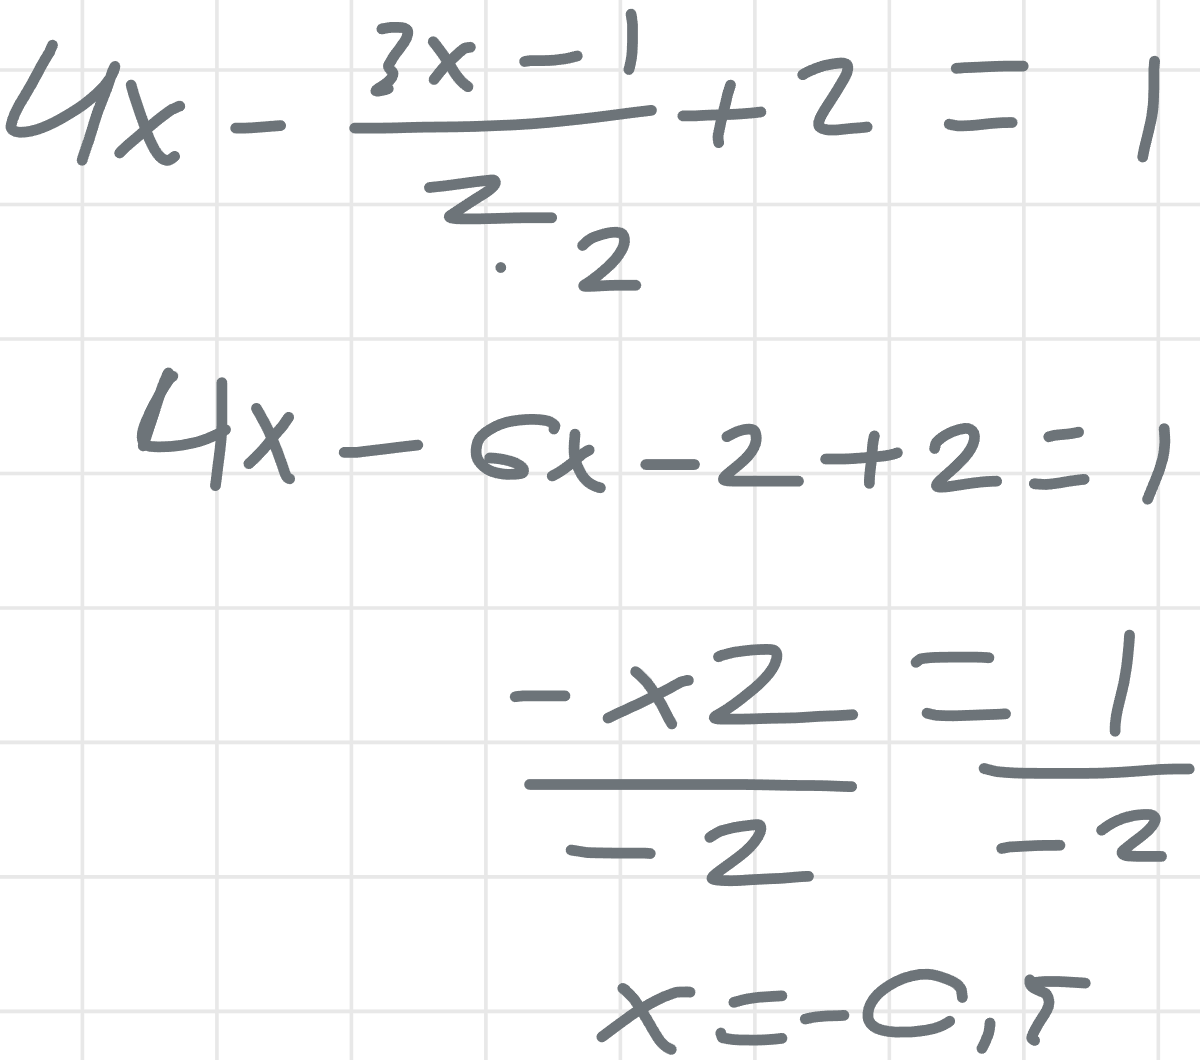 4x - (3x - 1)/2 + 2 = 1
· 2
4x - 6x - 2 + 2 = 1
-x2 = 1
-2 -2
x = -0,5